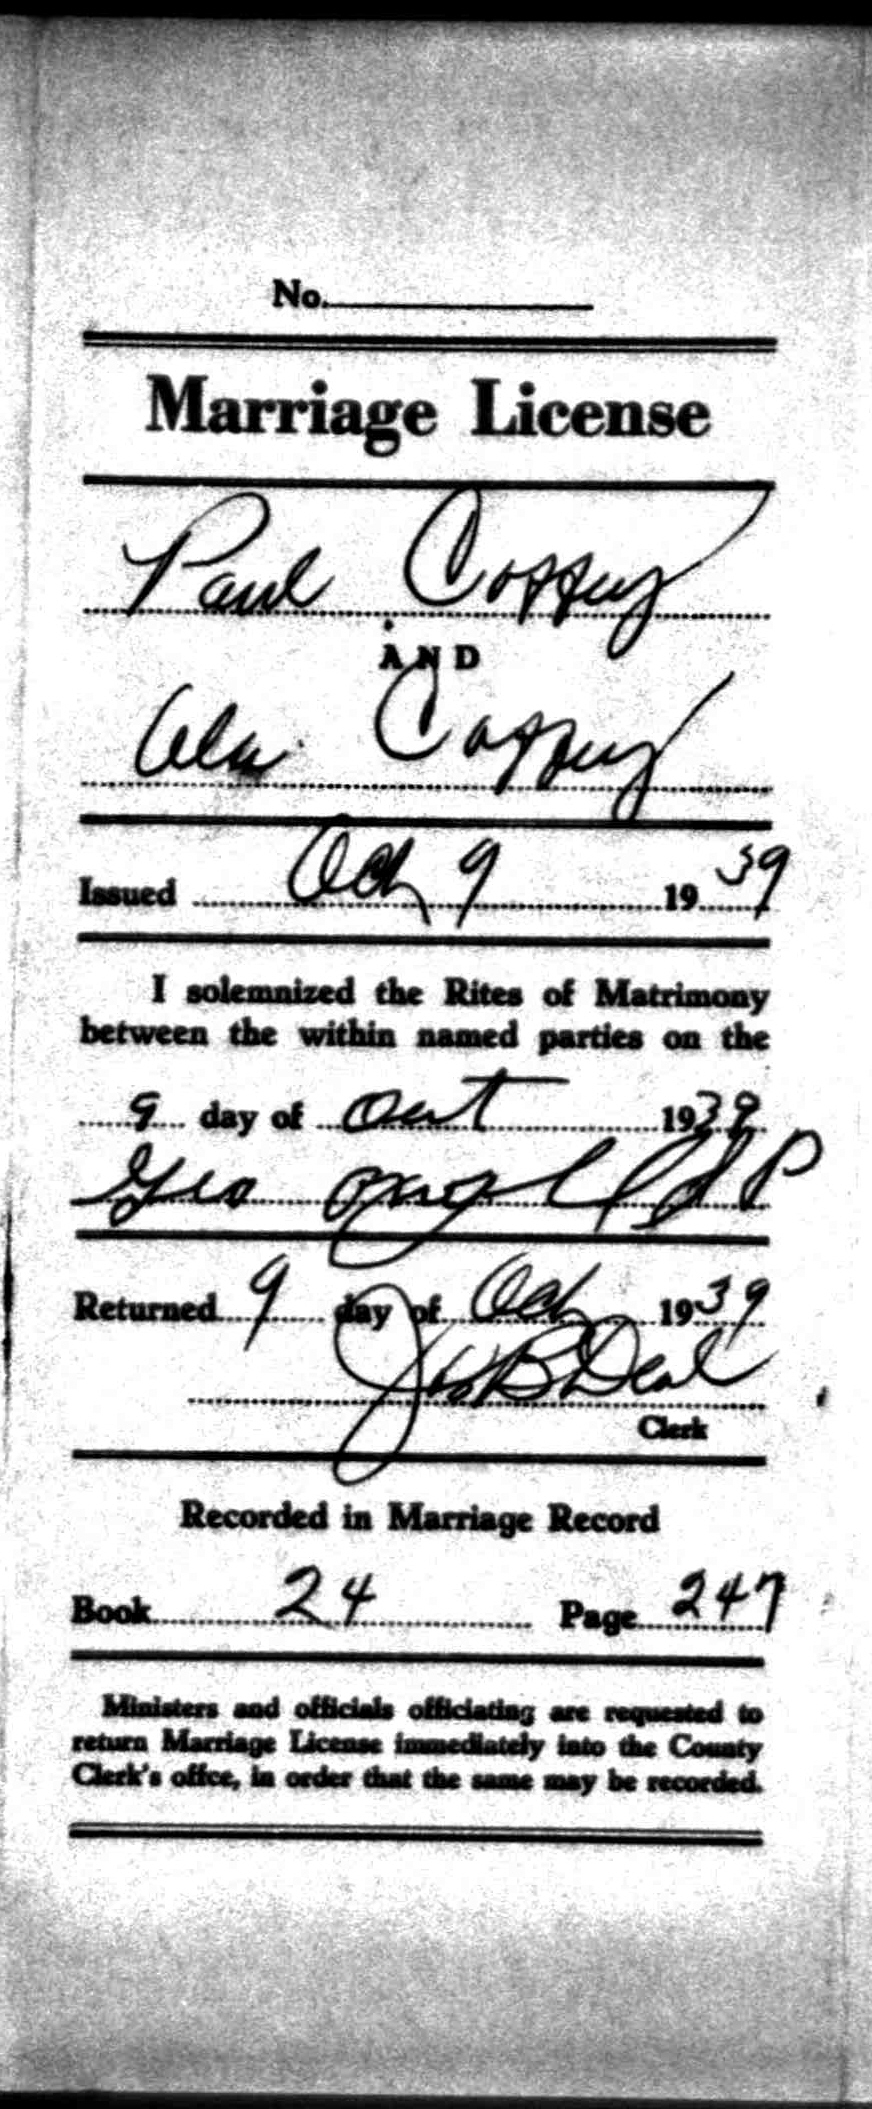 No.
Marriage License
Paul Coffey
AND
Ola Coffey
Issued Oct 9 1939
I solemnized the Rites of Matrimony
between the within named parties on the
9 day of Oct 1939
Geo J P
Returned 9 day of Oct 1939
Jno B Deal
Clerk
Recorded in Marriage Record
Book 24 Page 247
Ministers and officials officiating are requested to
return Marriage License immediately into the County
Clerk's offce, in order that the same may be recorded.